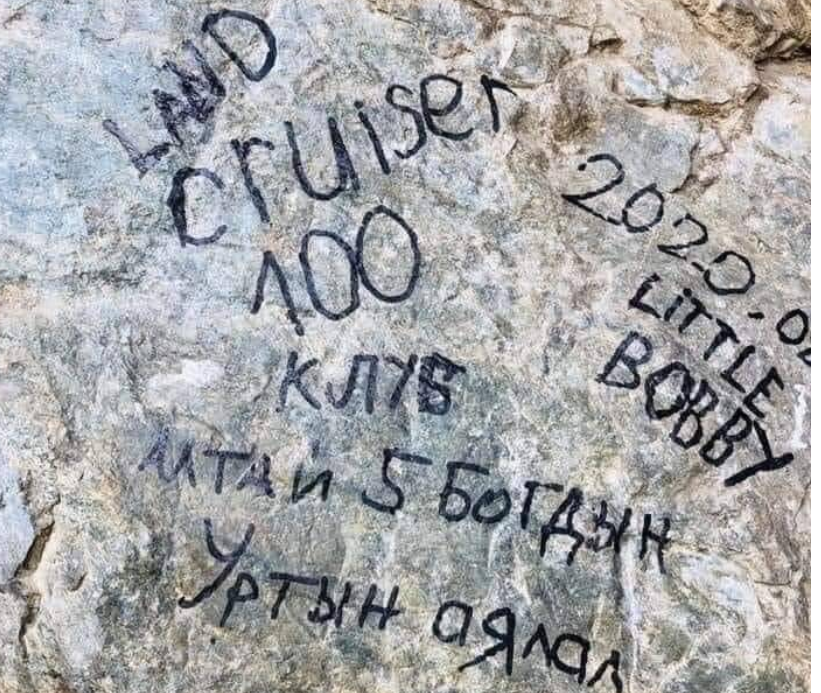 LAND
cruiser
100
КЛУБ
АЛТАИ 5 БОГДЫН
Уртын аялал
2020.02
LiTTLE
BOBBY